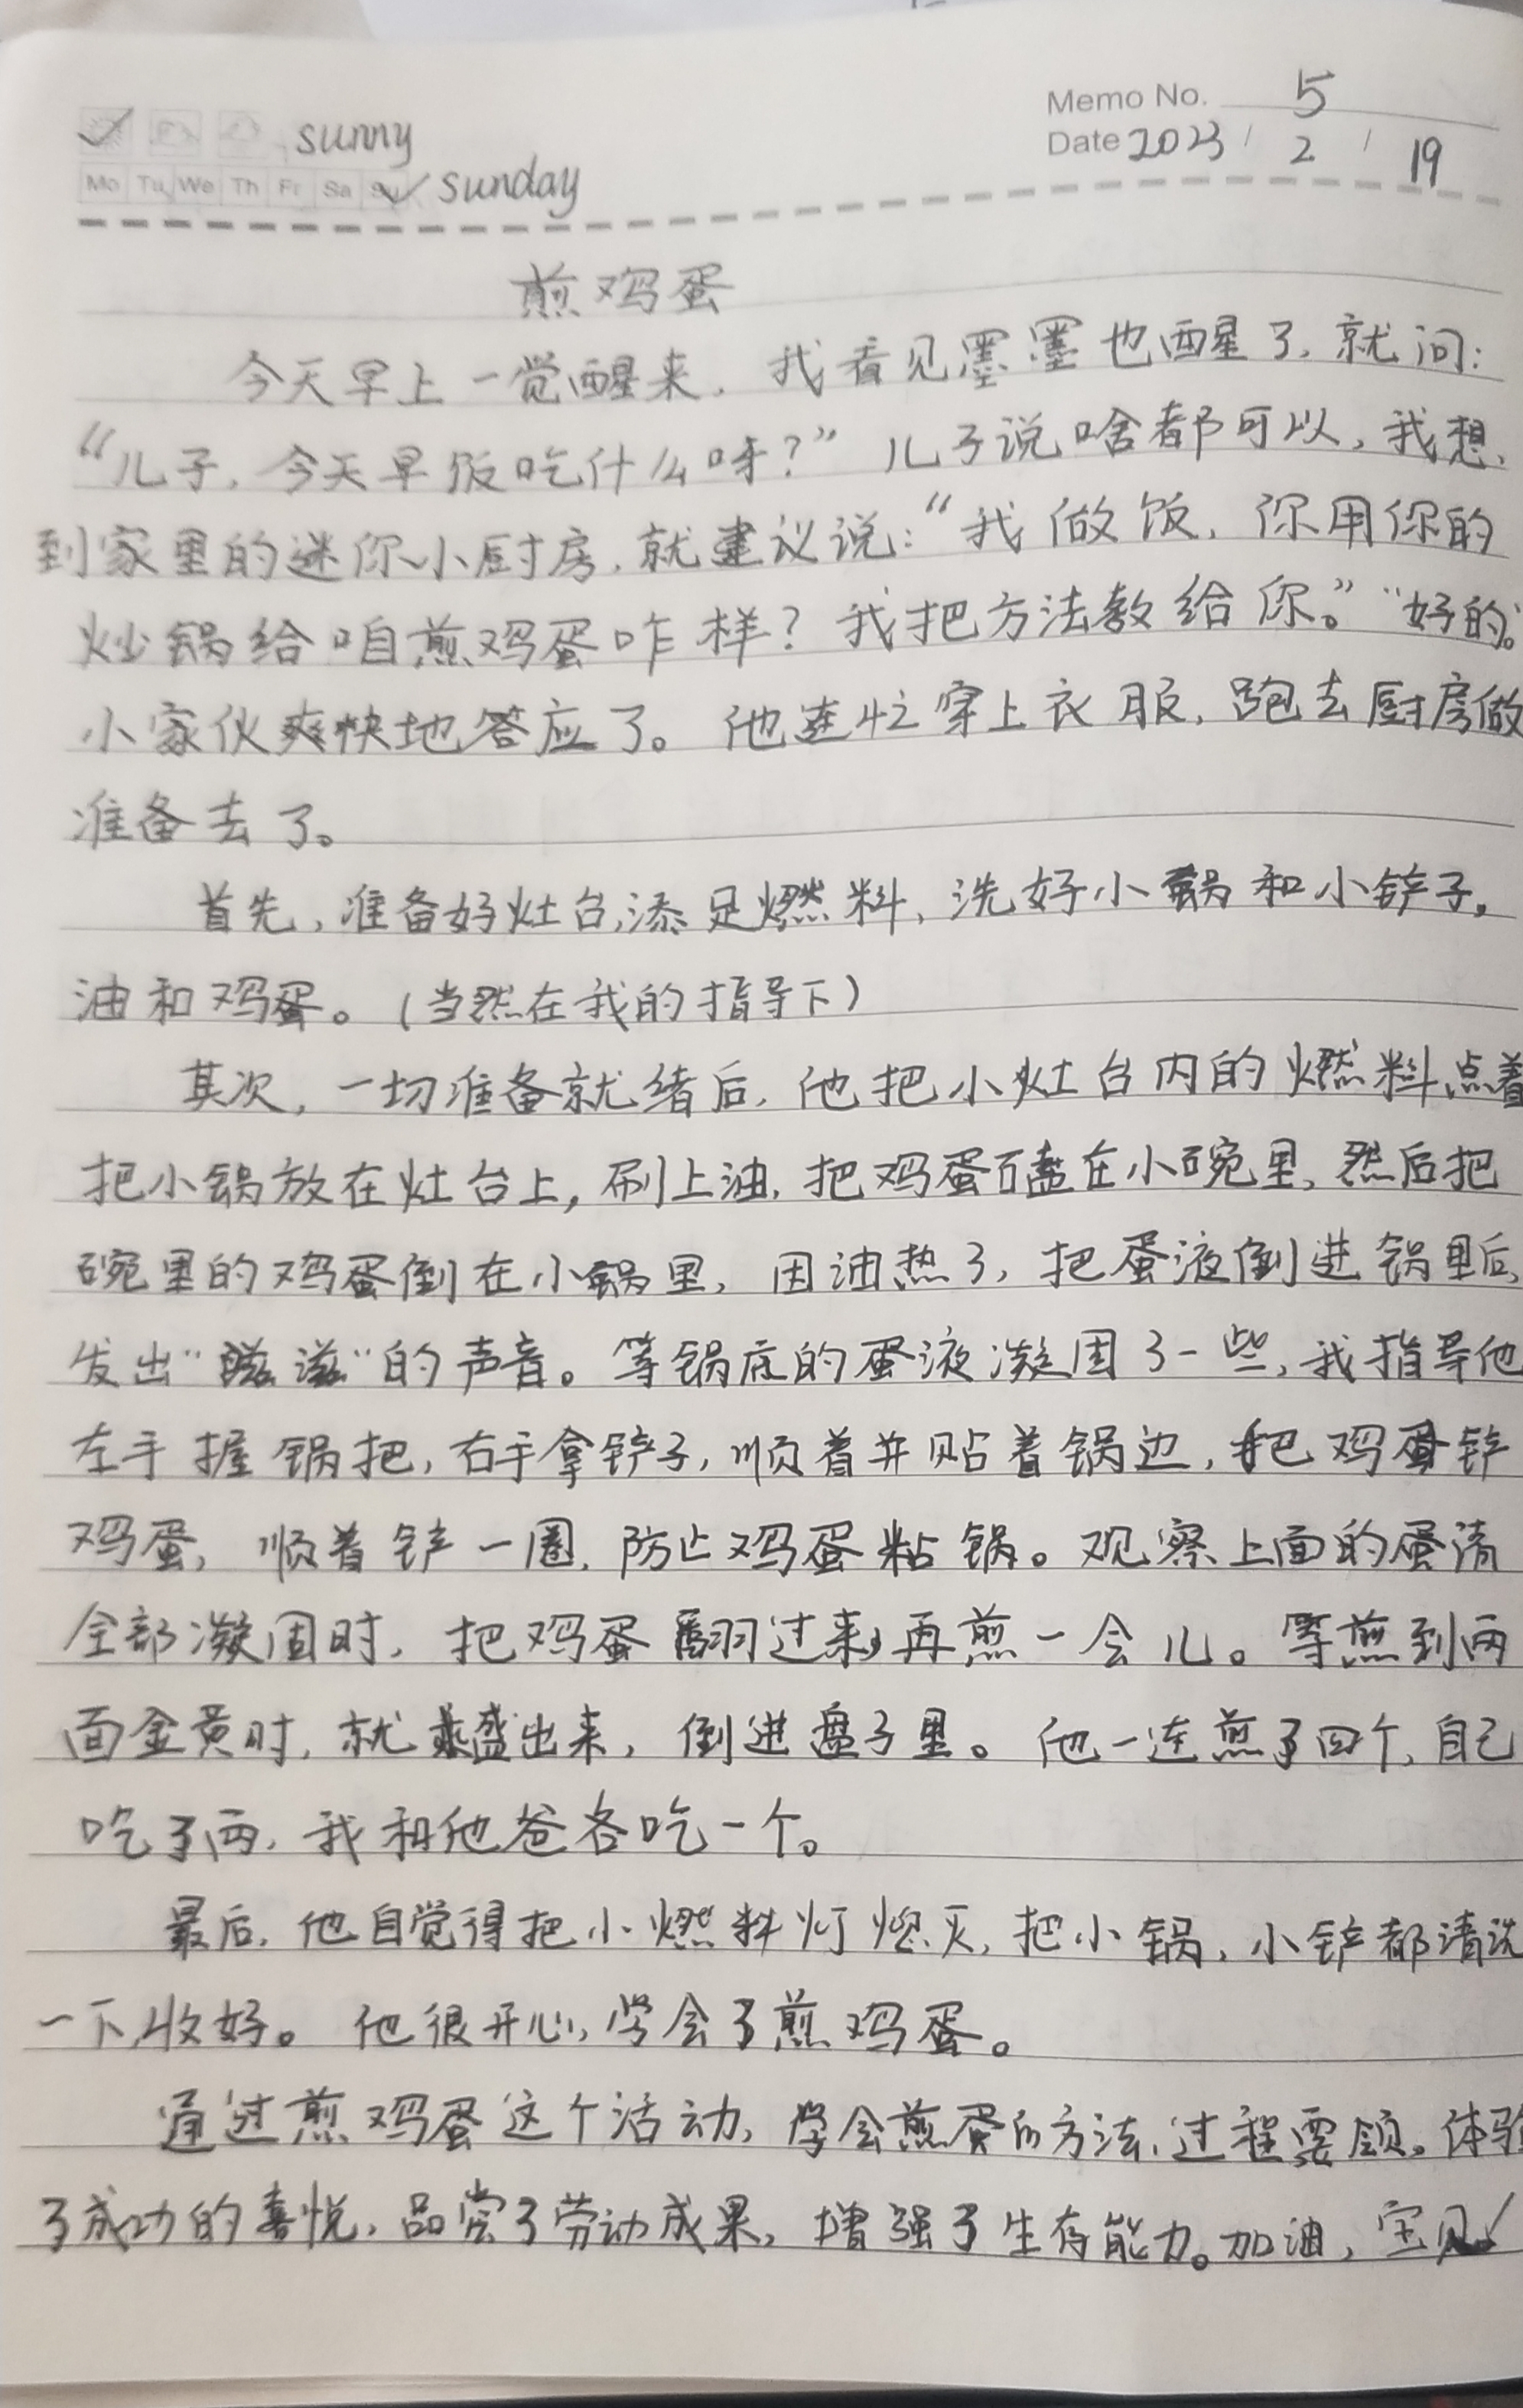 Memo No. 5
sunny
Date 2023 / 2 / 19
Mo Tu We Th Fr Sa Su sunday
煎鸡蛋
今天早上一觉醒来，我看见墨墨也醒了，就问：
“儿子，今天早饭吃什么呀？”儿子说啥都可以，我想，
到家里的迷你小厨房，就建议说：“我做饭，你用你的
炒锅给咱煎鸡蛋咋样？我把方法教给你。”“好的。”
小家伙爽快地答应了。他连忙穿上衣服，跑去厨房做
准备去了。
首先，准备好灶台，添足燃料，洗好小锅和小铲子，
油和鸡蛋。（当然在我的指导下）
其次，一切准备就绪后，他把小灶台内的燃料点着
把小锅放在灶台上，刷上油，把鸡蛋磕在小碗里，然后把
碗里的鸡蛋倒在小锅里，因油热了，把蛋液倒进锅里后，
发出“滋滋”的声音。等锅底的蛋液凝固了一些，我指导他
左手握锅把，右手拿铲子，顺着并贴着锅边，把鸡蛋铲
鸡蛋，顺着铲一圈，防止鸡蛋粘锅。观察上面的蛋清
全部凝固时，把鸡蛋翻过来，再煎一会儿。等煎到两
面金黄时，就盛出来，倒进盘子里。他一连煎了四个，自己
吃了两，我和他爸各吃一个。
最后，他自觉得把小燃料灯熄灭，把小锅，小铲都清洗
一下，收好。他很开心，学会了煎鸡蛋。
通过煎鸡蛋这个活动，学会煎蛋的方法，过程要领。体验
了成功的喜悦，品尝了劳动成果，增强了生存能力。加油，宝贝！